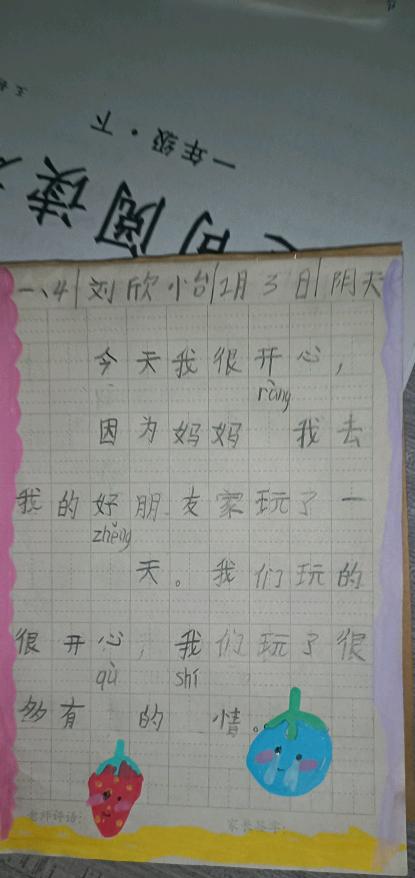 一年级·下
阅读
一、4 刘欣怡 12月3日 阴天
今天我很开心，
ràng
因为妈妈 我去
我的好朋友家玩了一
zhěng
天。我们玩的
很开心，我们玩了很
qù shí
多有 的 情。
老师评语： 家长签字：